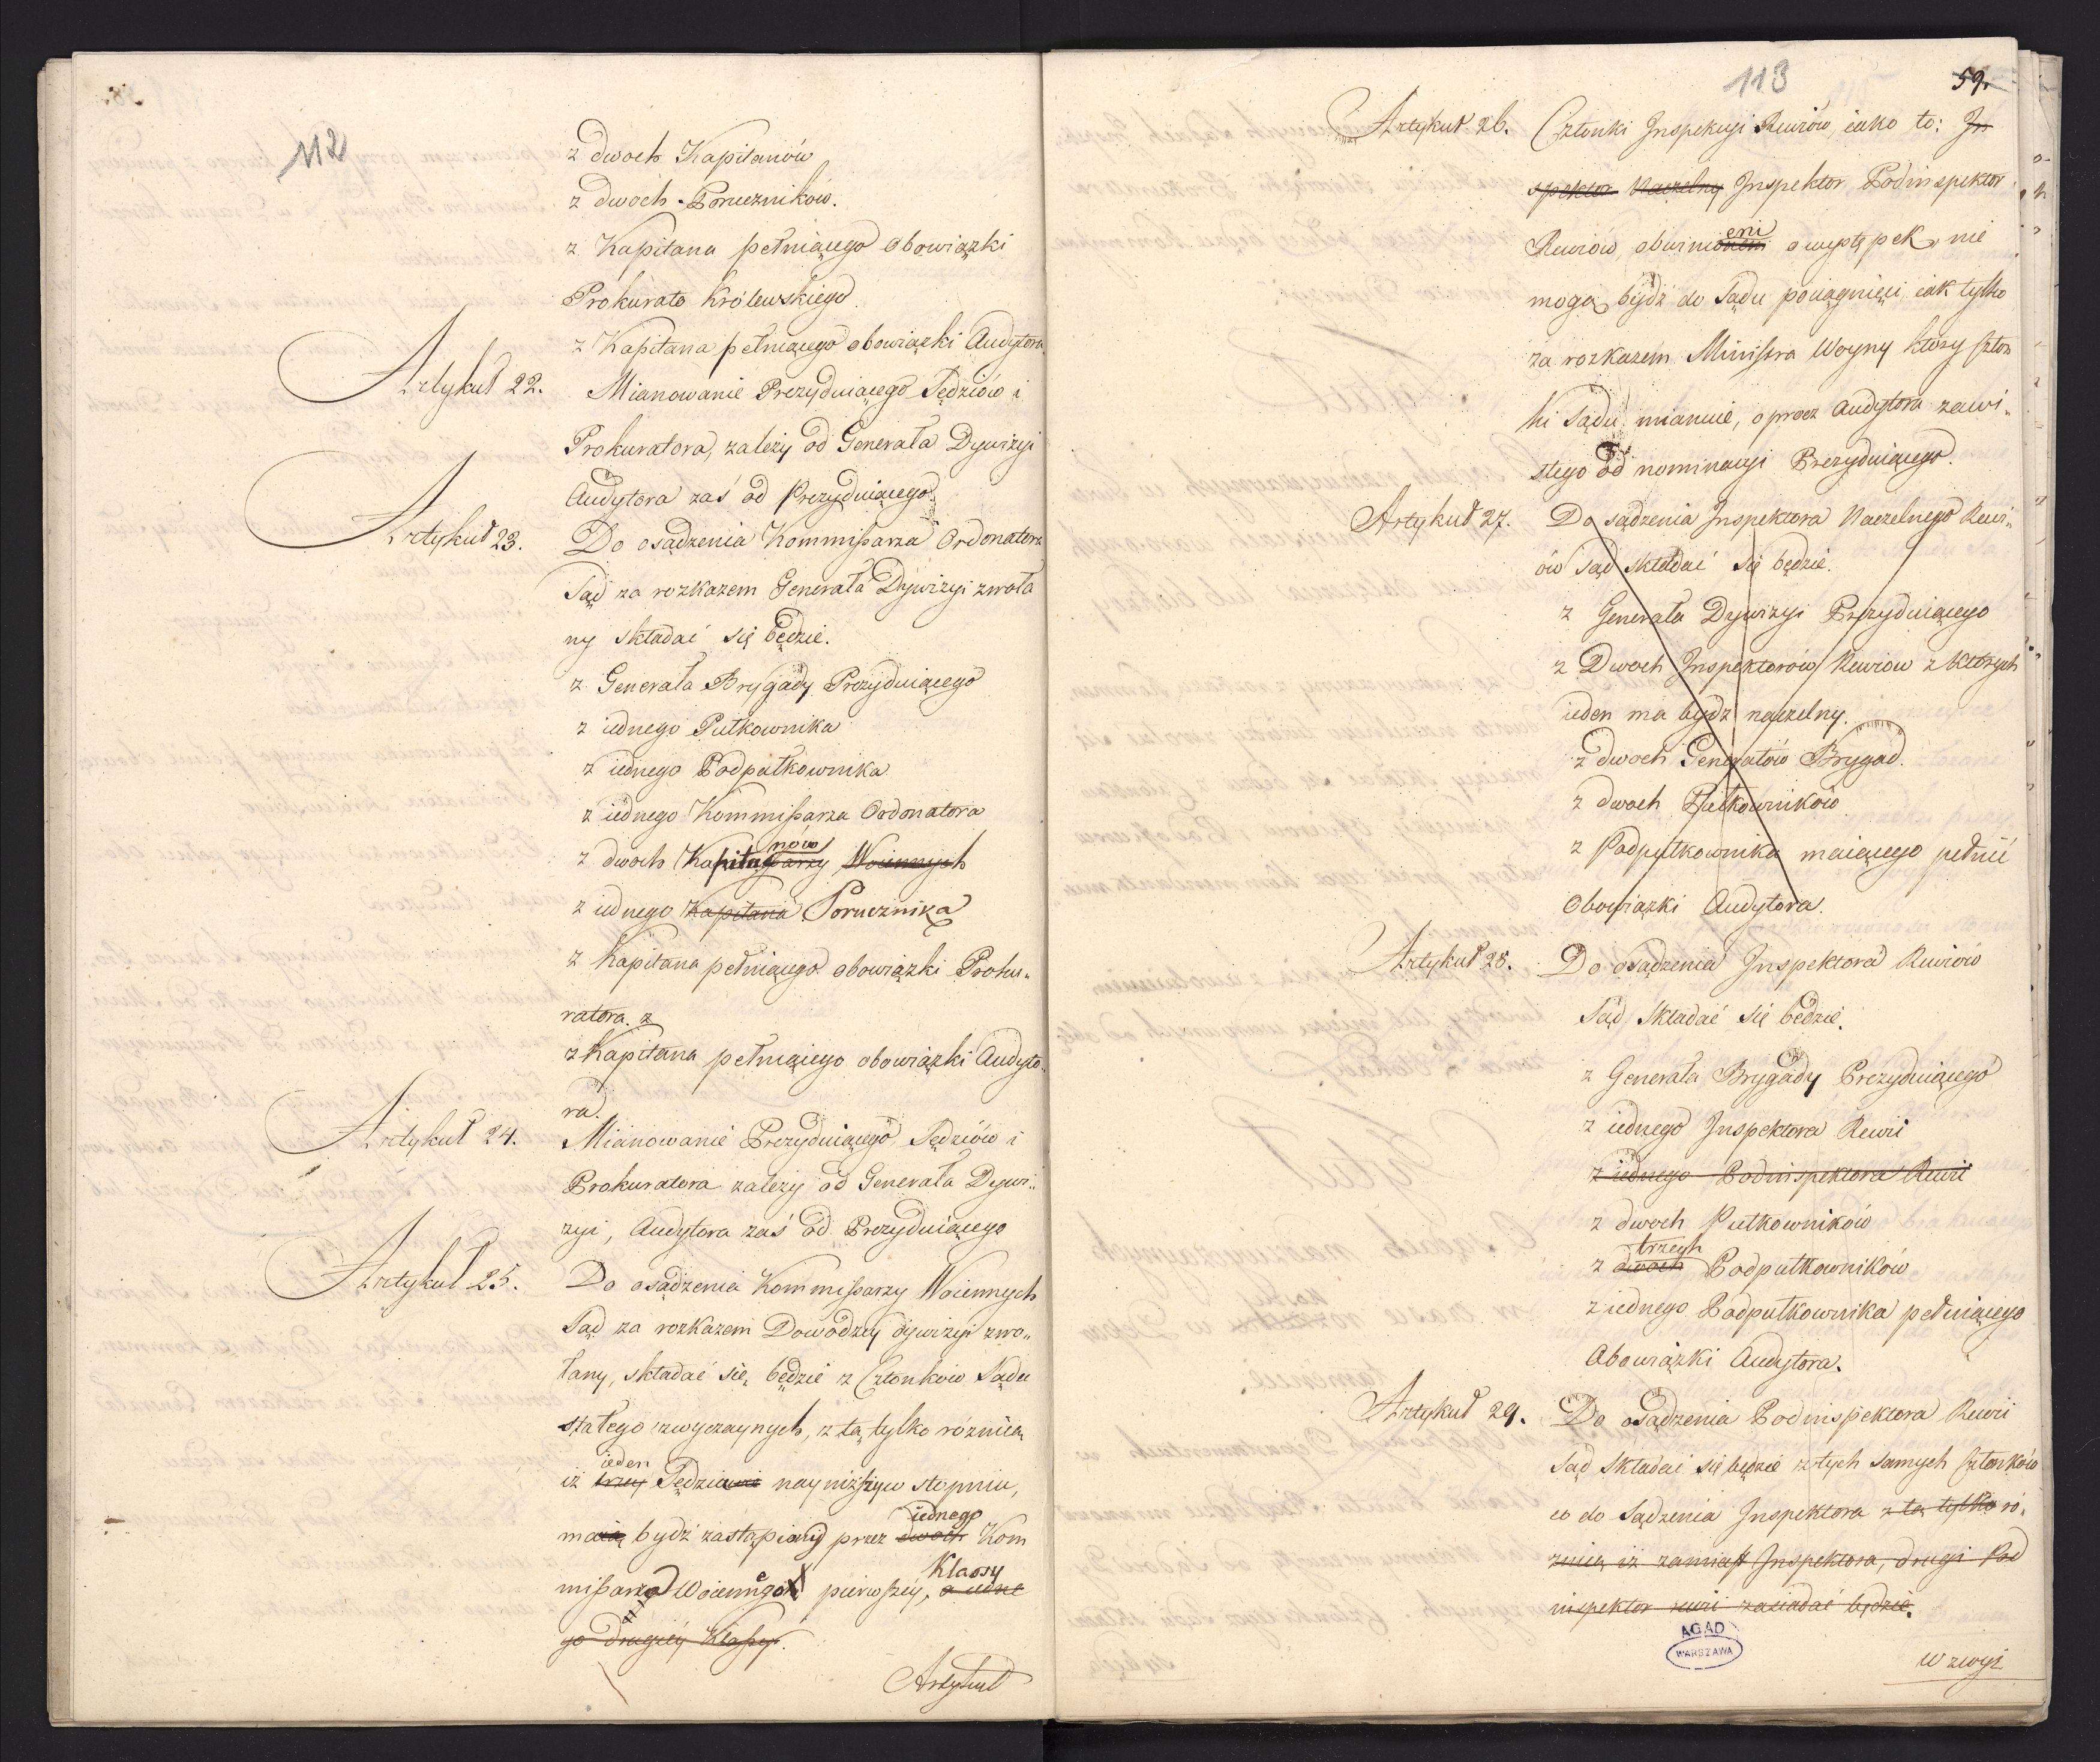 112
z dwoch Kapitanów
z dwoch Poruczników.
z Kapitana pełniącego Obowiązki
Prokurato Królewskiego
z Kapitana pełniącego obowiązki Audytora
Artykuł 22. Mianowanie Prezyduiącego Sędziów i
Prokuratora, zależy od Generała Dywizyi
Audytora zaś od Prezyduiącego.
Artykuł 23. Do osądzenia Kommissarza Ordonatora
Sąd za rozkazem Generała Dywizyi zwoła
ny składać się będzie.
z Generała Brygady Prezyduiącego
z iednego Pułkownika
z iednego Podpułkownika
z iednego Kommissarza Ordonatora
nów
z dwoch Kapitanarzy Woiennych
z iednego Kapitana Porucznika
z Kapitana pełniącego obowiązki Proku„
ratora. z
z Kapitana pełniącego obowiązki Audyto„
ra.
Artykuł 24. Mianowanie Prezyduiącego Sędziów i
Prokuratora zależy od Generała Dywi„
zyi, Audytora zaś od Prezyduiącego
Artykuł 25. Do osądzenia Kommissarzy Woiennych
Sąd za rozkazem Dowodzcy dywizyi zwo„
łany, składać się będzie z Członków Sądu
stałego zwyczaynych, z tą tylko róznicą
ieden
iż trzey Sędziowie nayniższy w stopniu,
iednego
maią bydź zastąpiony przez dwoch Kom
Klassy
missarza Woiennego pierwszey, a iedne
go drugiey Klassy.
Artykuł
113
59.
Artykuł 26. Członki Inspekcyi Rewiów, iako to: In
spektor Naczelny Inspektor Podinspektor
eni
Rewiów, obwinionem o występek, nie
mogą bydź do Sądu pociągnięci iak tylko
za rozkazem Ministra Woyny ktory człon
ki Sądu mianuie, oprocz Audytora zawi„
słego od nominacyi Prezyduiącego.
Artykuł 27. Do sądzenia Inspektora Naczelnego Rewi„
ów Sąd składać się będzie.
z Generała Dywizyi Prezyduiącego
z Dwoch Inspektorów Rewiow z ktorych
ieden ma bydź naczelny.
z dwoch Generałów Brygad.
z dwoch Pułkowników
z Podpułkownika maiącego pełnić
Obowiązki Audytora.
Artykuł 28. Do osądzenia Inspektora Rewiów
Sąd Składać się będzie.
z Generała Brygady Prezyduiącego
z iednego Inspektora Rewii
z iednego Podinspektora Rewii
z dwoch Pułkowników
trzech
z dwoch Podpułkowników
z iednego Podpułkownika pełniącego
Obowiązki Audytora.
Artykuł 29. Do osądzenia Podinspektora Rewii
Sąd składać się będzie z tych samych członków
co do Sądzenia Inspektora z tą tylko ró„
znicą iż zamiast Inspektora, drugi Pod
inspektor rewii zasiadać będzie.
AGAD
WARSZAWA
w zwyż